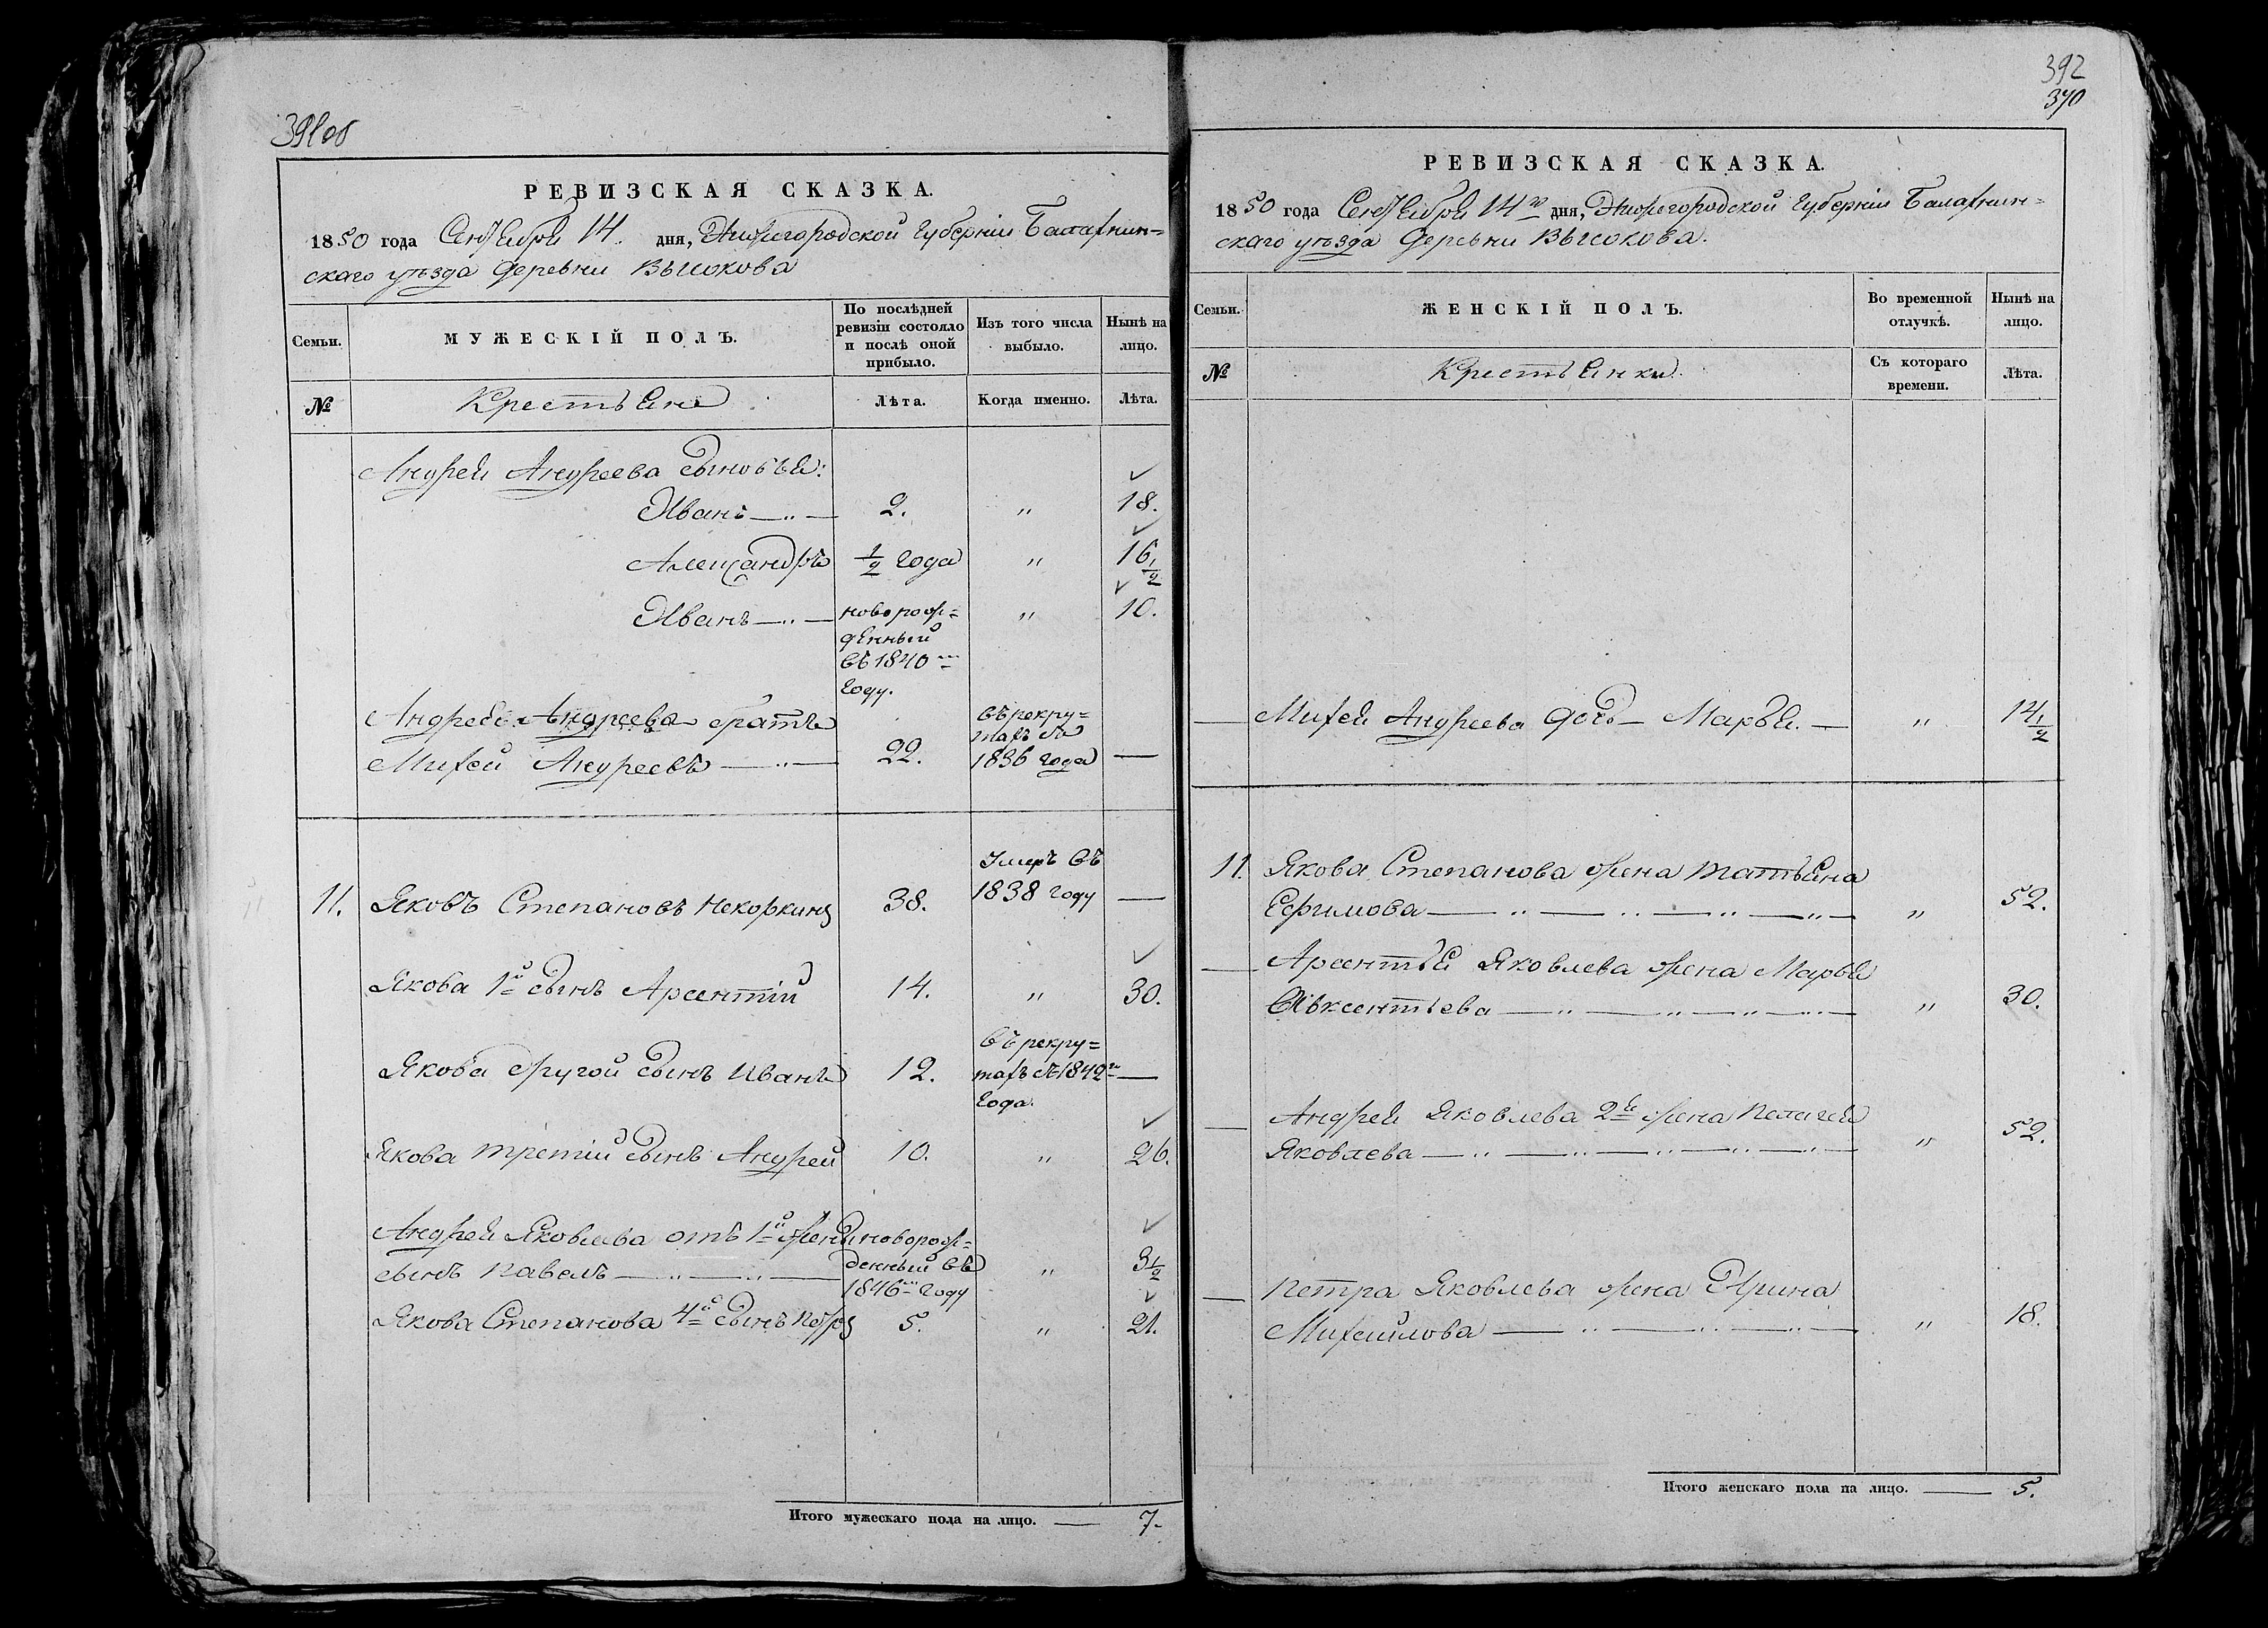 391об
РЕВИЗСКАЯ СКАЗКА.
1850 года Сентября 14. дня, Нижегородской Губерніи Балахнин-
скаго уѣзда Деревни Высокова
Семьи. МУЖЕСКІЙ ПОЛЪ. По послѣдней ревизіи состояло и послѣ оной прибыло. Изъ того числа выбыло. Нынѣ на лицо.
№ Крестьяне Лѣта. Когда именно. Лѣта.
Андрея Андреева сыновья:
Иванъ —„— 2. „ 18.
Александръ ½ года „ 16½
Иванъ —„— новорож= „ 10.
денный
въ 1840 м
году.
Андрея Андреева братъ въ рекру=
тахъ съ
Михей Андреевъ —„— 22. 1836 года —
Умеръ въ
11. Яковъ Степановъ Некоркинъ 38. 1838 году —
Якова 1й сынъ Арсентій 14. „ 30.
въ рекру=
Якова другой сынъ Иванъ 12. тахъ съ 1842 го —
года.
Якова третій сынъ Андрей 10. „ 26.
Андрея Яковлева отъ 1й жены новорож=
сынъ Павелъ —„—„— денный въ „ 3½
1846 м году
Якова Степанова 4й сынъ Петръ 5. „ 21.
Итого мужескаго пола на лицо. — 7.
392
370
РЕВИЗСКАЯ СКАЗКА.
1850 года Сентября 14го дня, Нижегородской Губерніи Балахнин=
скаго уѣзда Деревни Высокова.
Семьи. ЖЕНСКІЙ ПОЛЪ. Во временной отлучкѣ. Нынѣ на лицо.
№ Крестьянки. Съ котораго времени. Лѣта.
— Михея Андреева дочь — Марья. — „ 14½
11. Якова Степанова жена Татьяна
Ефимова —„—„—„—„— „ 52.
— Арсентья Яковлева жена Марья
Авксентьева —„—„—„—„— „ 30.
— Андрея Яковлева 2я жена Пелагея
Яковлева —„—„—„—„—„— „ 52.
— Петра Яковлева жена Ирина
Михайлова —„—„—„— „ 18.
Итого женскаго пола на лицо. — 5.